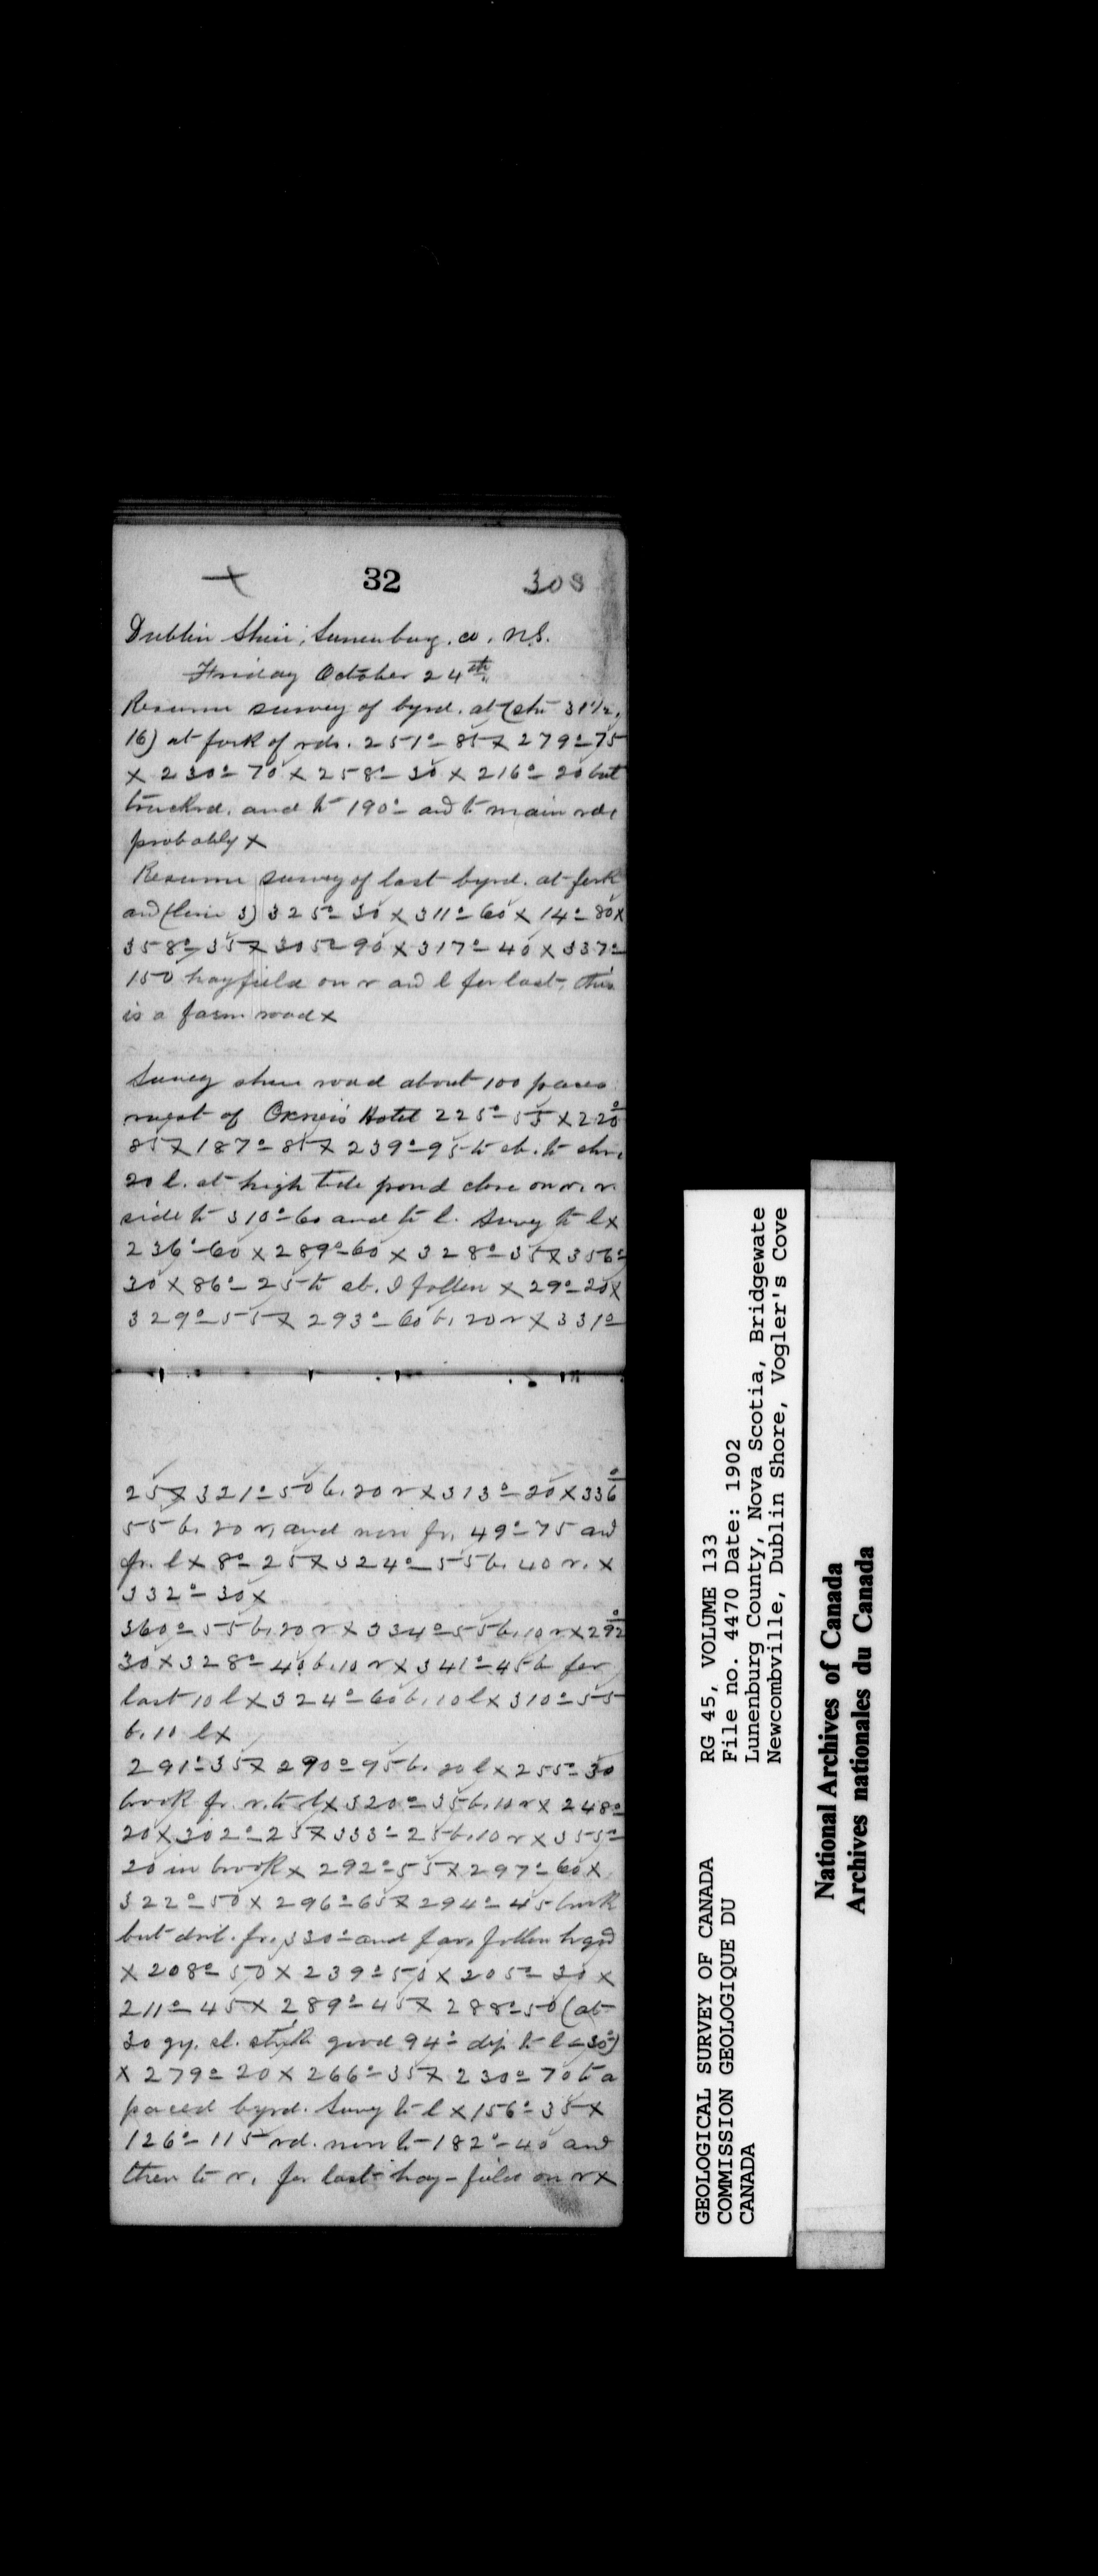 + 32 308
Dublin Shore, Lunenburg. co. N.S.
Friday October 24th.
Resume survey of byrd. at 31 1/2,
16) at fork of rds. 251°-85 x 279°-75
x 230°-70 x 258°-30 x 216°-20 but
truckrd. and to 190°- and to main rd.
probably x
Resume survey of last byrd. at fork
and (line 3) 325°-30 x 311°-60 x 14°-80 x
358°-35 x 305°-90 x 317°-40 x 337°-
150 hayfield on r and l for last, this
is a farm road x
Survey shore road about 100 paces
west of Oxner's Hotel 225°-55 x 220°
85 x 187°-85 x 239°-95 to sb. to shr.
20 l. at high tide pond close on r. r.
side to 310°-60 and to l. Survy to l x
236°-60 x 289°-60 x 328°-35 x 356°-
30 x 86°-25 to sb. I follow x 29°-20 x
329°-55 x 293°-60 b. 20 r x 331°-
25 x 321°-50 b. 20 r x 313°-20 x 336°
55 b. 20 r, and now fr. 49°-75 and
fr. l x 8°-25 x 324°-55 b. 40 r. x
332°-30 x
360°-55 b. 20 r x 334°-55 b. 10 r x 292°
30 x 328°-40 b. 10 r x 341°-45 b for
last 10 l x 324°-60 b. 10 l x 310°-55
b. 10 l x
291°-35 x 290°-95 b. 20 l x 255°-30
brook fr. r. to l x 320°-35 b. 10 r x 248°-
20 x 302°-25 x 333°-25 b. 10 r x 355°-
20 in brook x 292°-55 x 297°-60 x
322°-50 x 296°-65 x 294°-45 brook
but fr. 330°- and follow
x 208°-50 x 239°-50 x 205°-30 x
211°-45 x 289°-45 x 288°-50 (at
30 gy. sl. strike good 94°- dip to l = 30°)
x 279°-20 x 266°-35 x 230°-70 to a
paced byrd. Survy to l x 156°-35 x
126°-115 rd. now to 182°-40 and
then to r. for last hay-field on r x
GEOLOGICAL SURVEY OF CANADA
COMMISSION GEOLOGIQUE DU
CANADA
RG 45, VOLUME 133
File no. 4470 Date: 1902
Lunenburg County, Nova Scotia, Bridgewate
Newcombville, Dublin Shore, Vogler's Cove
National Archives of Canada
Archives nationales du Canada